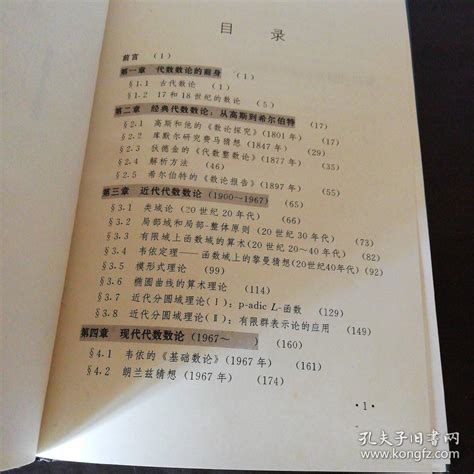 目 录
前言 (1)
第一章 代数数论的前身 (1)
§1.1 古代数论 (1)
§1.2 17和18世纪的数论 (5)
第二章 经典代数数论，从高斯到希尔伯特 (17)
§2.1 高斯和他的《数论探究》(1801年) (17)
§2.2 库默尔研究费马猜想(1847年) (29)
§2.3 狄德金的《代数整数论》(1877年) (35)
§2.4 解析方法 (46)
§2.5 希尔伯特的《数论报告》(1897年) (55)
第三章 近代代数数论(1900～1967) (65)
§3.1 类域论(20世纪20年代) (66)
§3.2 局部域和局部-整体原则(20世纪30年代) (73)
§3.3 有限域上函数域的算术(20世纪20～40年代) (82)
§3.4 韦依定理——函数域上的黎曼猜想(20世纪40年代) (92)
§3.5 模形式理论 (99)
§3.6 椭圆曲线的算术理论 (114)
§3.7 近代分圆域理论(Ⅰ)；p-adic L-函数 (129)
§3.8 近代分圆域理论(Ⅱ)；有限群表示论的应用 (149)
第四章 现代代数数论(1967～ ) (160)
§4.1 韦依的《基础数论》(1967年) (161)
§4.2 朗兰兹猜想(1967年) (174)
·1·
孔夫子旧书网
www.kongfz.com